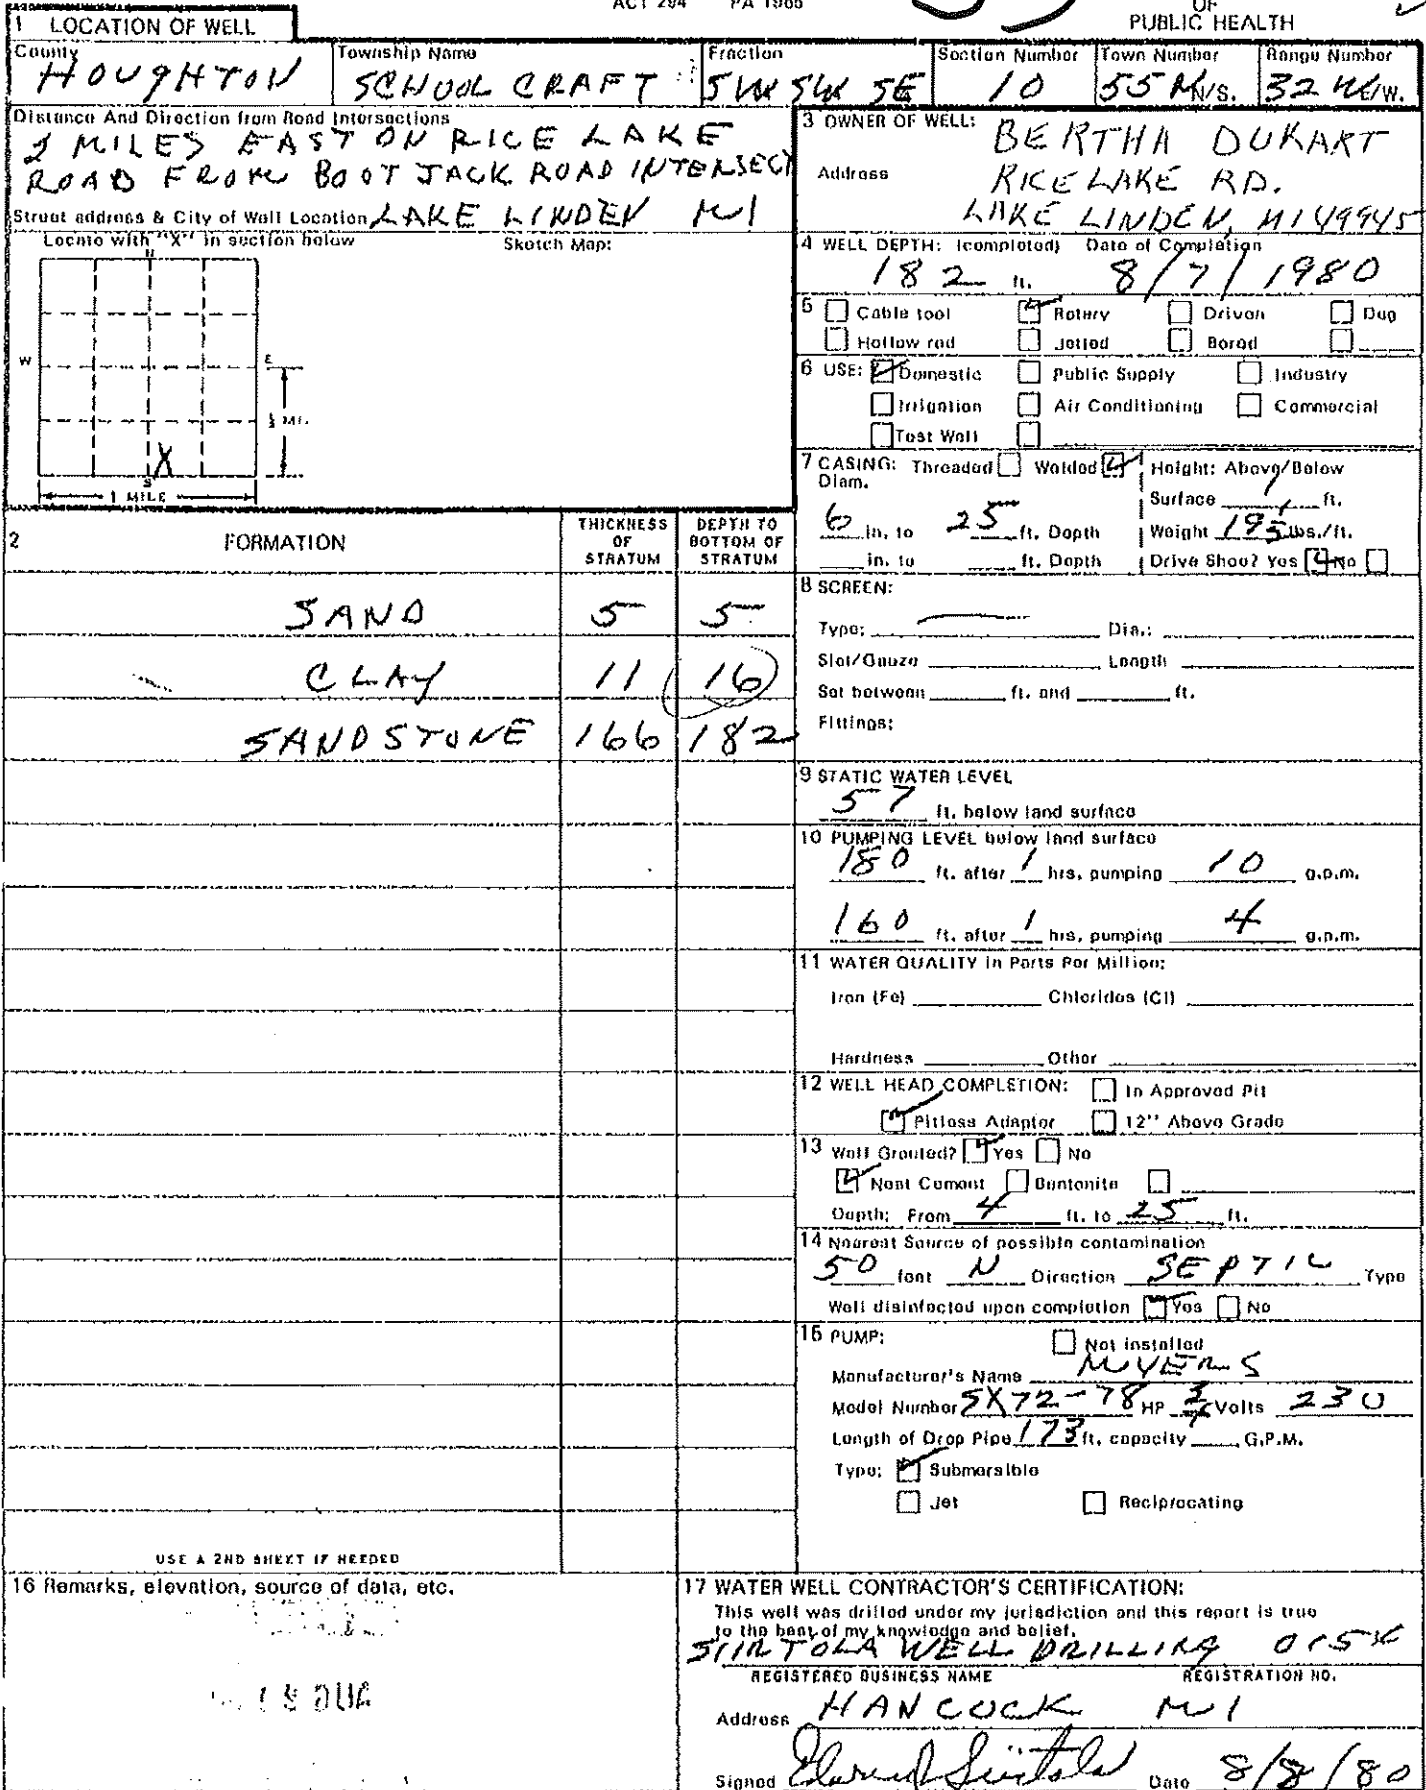 ACT 294 PA 1965
OF
PUBLIC HEALTH
1 LOCATION OF WELL
County HOUGHTON
Township Name SCHOOL CRAFT
Fraction SW SW SE
Section Number 10
Town Number 55 N N/S.
Range Number 32 W E/W.
Distance And Direction from Road Intersections
2 MILES EAST ON RICE LAKE
ROAD FROM BOOT JACK ROAD INTERSECT
Street address & City of Well Location LAKE LINDEN MI
Locate with "X" in section below Sketch Map:
N
W E
½ MI.
X
S
1 MILE
2 FORMATION THICKNESS OF STRATUM DEPTH TO BOTTOM OF STRATUM
SAND 5 5
CLAY 11 16
SANDSTONE 166 182
USE A 2ND SHEET IF NEEDED
3 OWNER OF WELL: BERTHA DUKART
Address RICE LAKE RD.
LAKE LINDEN, MI 49945
4 WELL DEPTH: (completed) Date of Completion
182 ft. 8/7/1980
5 Cable tool Rotary Driven Dug
Hollow rod Jetted Bored
6 USE: Domestic Public Supply Industry
Irrigation Air Conditioning Commercial
Test Well
7 CASING: Threaded Welded Height: Above/Below
Diam. Surface 1 ft.
6 in. to 25 ft. Depth Weight 19.5 lbs./ft.
in. to ft. Depth Drive Shoe? Yes No
8 SCREEN:
Type: Dia.:
Slot/Gauze Length
Set between ft. and ft.
Fittings:
9 STATIC WATER LEVEL
57 ft. below land surface
10 PUMPING LEVEL below land surface
180 ft. after 1 hrs. pumping 10 g.p.m.
160 ft. after 1 hrs. pumping 4 g.p.m.
11 WATER QUALITY in Parts Per Million:
Iron (Fe) Chlorides (Cl)
Hardness Other
12 WELL HEAD COMPLETION: In Approved Pit
Pitless Adapter 12" Above Grade
13 Well Grouted? Yes No
Neat Cement Bentonite
Depth: From 4 ft. to 25 ft.
14 Nearest Source of possible contamination
50 feet N Direction SEPTIC Type
Well disinfected upon completion Yes No
15 PUMP: Not installed
Manufacturer's Name MYERS
Model Number SX72-78 HP 3/4 Volts 230
Length of Drop Pipe 173 ft. capacity G.P.M.
Type: Submersible
Jet Reciprocating
16 Remarks, elevation, source of data, etc.
AUG
17 WATER WELL CONTRACTOR'S CERTIFICATION:
This well was drilled under my jurisdiction and this report is true
to the best of my knowledge and belief.
SIIRTOLA WELL DRILLING
REGISTERED BUSINESS NAME REGISTRATION NO.
Address HANCOCK MI
Signed Siirtola Date 8/8/80